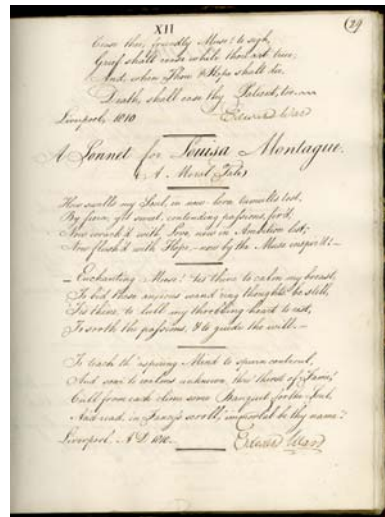 XII
(29
Cease thou, friendly Muse! to sigh,
Grief shall cease while thou art true;
And, when Thou & Hope shall die,
Death, shall ease thy Patient, too.
Liverpool, 1810 Edward Ward
A Sonnet for Louisa Montague.
(A Moral Tale)
How swells my Soul, in new born tumults tost,
By fierce, yet sweet, contending passions, fir'd,
Now with Love, now in Ambition lost;
Now flush'd with Hope, - now by the Muse inspir'd! -
- Enchanting Muse! 'tis thine to calm my breast,
To bid those anxious wand'ring thoughts be still,
'Tis thine, to lull my throbbing heart to rest,
To sooth the passions, & to guide the will. -
To teach th' aspiring Mind to spurn controul,
And soar to realms unknown, thro' thirst of Fame,
Cull from each clime some Banquet for the Soul,
And read, in Fancy's scroll, immortal be thy name!
Liverpool A D 1810. Edward Ward